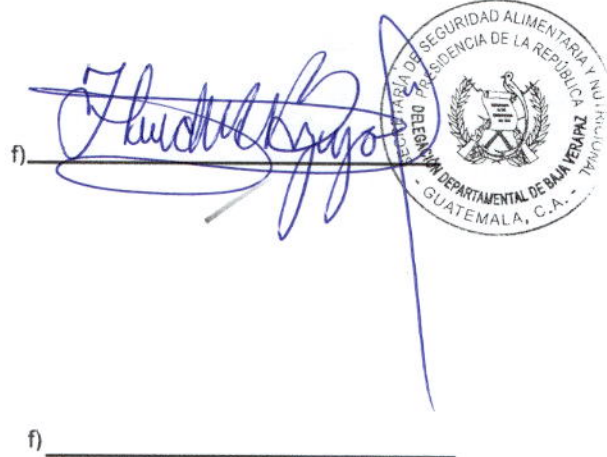 SECRETARÍA DE SEGURIDAD ALIMENTARIA Y NUTRICIONAL
PRESIDENCIA DE LA REPÚBLICA
DELEGACIÓN DEPARTAMENTAL DE BAJA VERAPAZ
- GUATEMALA, C.A. -
f)
f)